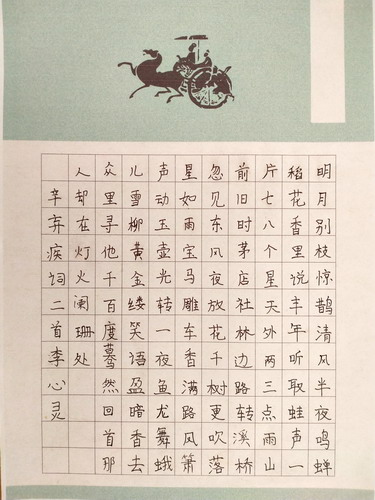 明月别枝惊鹊清风半夜鸣蝉
稻花香里说丰年听取蛙声一
片七八个星天外两三点雨山
前旧时茅店社林边路转溪桥
忽见东风夜放花千树更吹落
星如雨宝马雕车香满路风箫
声动玉壶光转一夜鱼龙舞蛾
儿雪柳黄金缕笑语盈暗香去
众里寻他千百度蓦然回首那
人却在灯火阑珊处
辛弃疾词二首李心灵